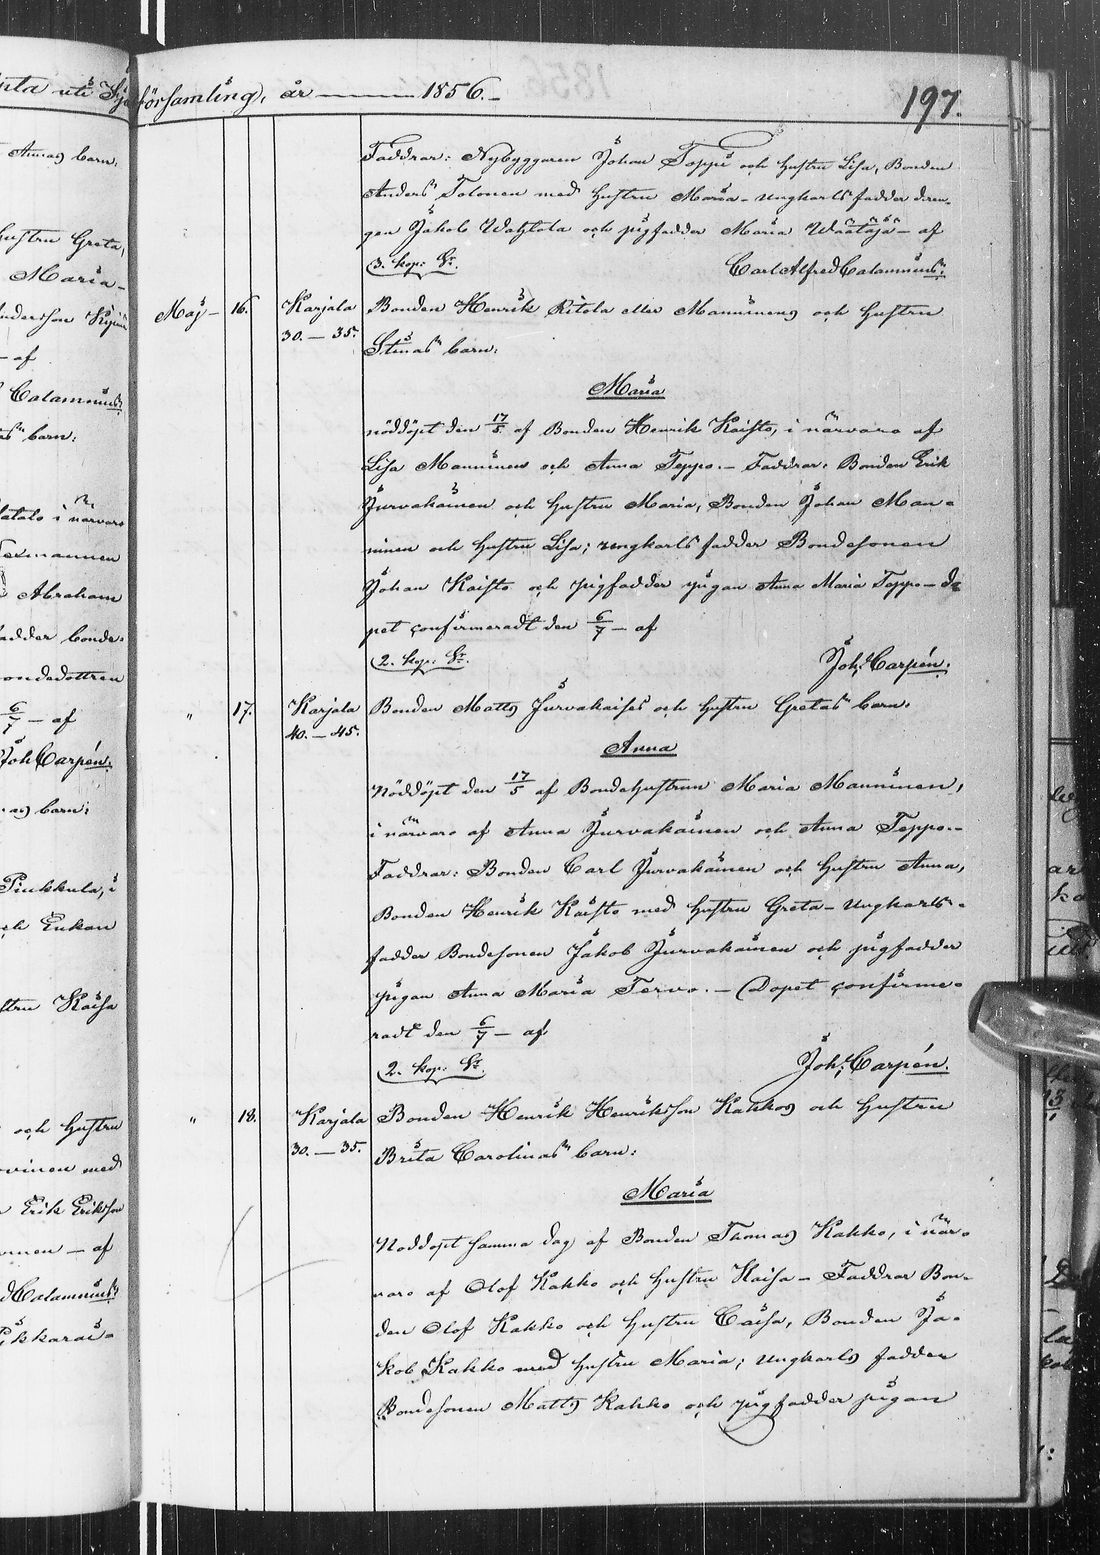 församling, år ——— 1856.
197.
Faddrar: Nybyggaren Johan Teppo och hustru Lisa, Bonden
Anders Tolonen med hustru Maria – ungkarlsfadder dren-
gen Jakob Wahtola och pigfadder Maria Määttäjä – af
(3. kop: Sr. Carl Alfred Calamnius.
Maj – 16. Karjala Bonden Henrik Ritola eller Manninens och hustru
30. – 35. Stinas barn:
Maria
nöddöpt den 17/5 af Bonden Henrik Kaisto, i närvaro af
Lisa Manninen och Anna Teppo. – Faddrar: Bonden Erik
Jurvakainen och hustru Maria, Bonden Johan Man-
ninen och hustru Lisa; ungkarlsfadder Bondesonen
Johan Kaisto och pigfadder pigan Anna Maria Teppo – do
pet confirmeradt den 6/7 – af
(2. kop: Sr. Joh: Carpén.
" 17. Karjala Bonden Matts Jurvakaises och hustru Gretas barn:
40. – 45.
Anna
Nöddöpt den 17/5 af Bondehustrun Maria Manninen,
i närvaro af Anna Jurvakainen och Anna Teppo. –
Faddrar: Bonden Carl Jurvakainen och hustru Anna,
Bonden Henrik Kaisto med hustru Greta – Ungkarls-
fadder Bondesonen Jakob Jurvakainen och pigfadder
pigan Anna Maria Tervo. – Dopet confirme-
radt den 6/7 – af
(2. kop: Sr. Joh: Carpén.
" 18. Karjala Bonden Henrik Henriksson Kakkos och hustru
30. – 35. Brita Carolinas barn:
Maria
Nöddöpt samma dag af Bonden Thomas Kakko, i när-
varo af Olof Kakko och hustru Kaisa – Faddrar Bon-
den Olof Kakko och hustru Caisa, Bonden Ja-
kob Kakko med hustru Maria; ungkarls fadder
Bondesonen Matts Kakko och pigfadder pigan